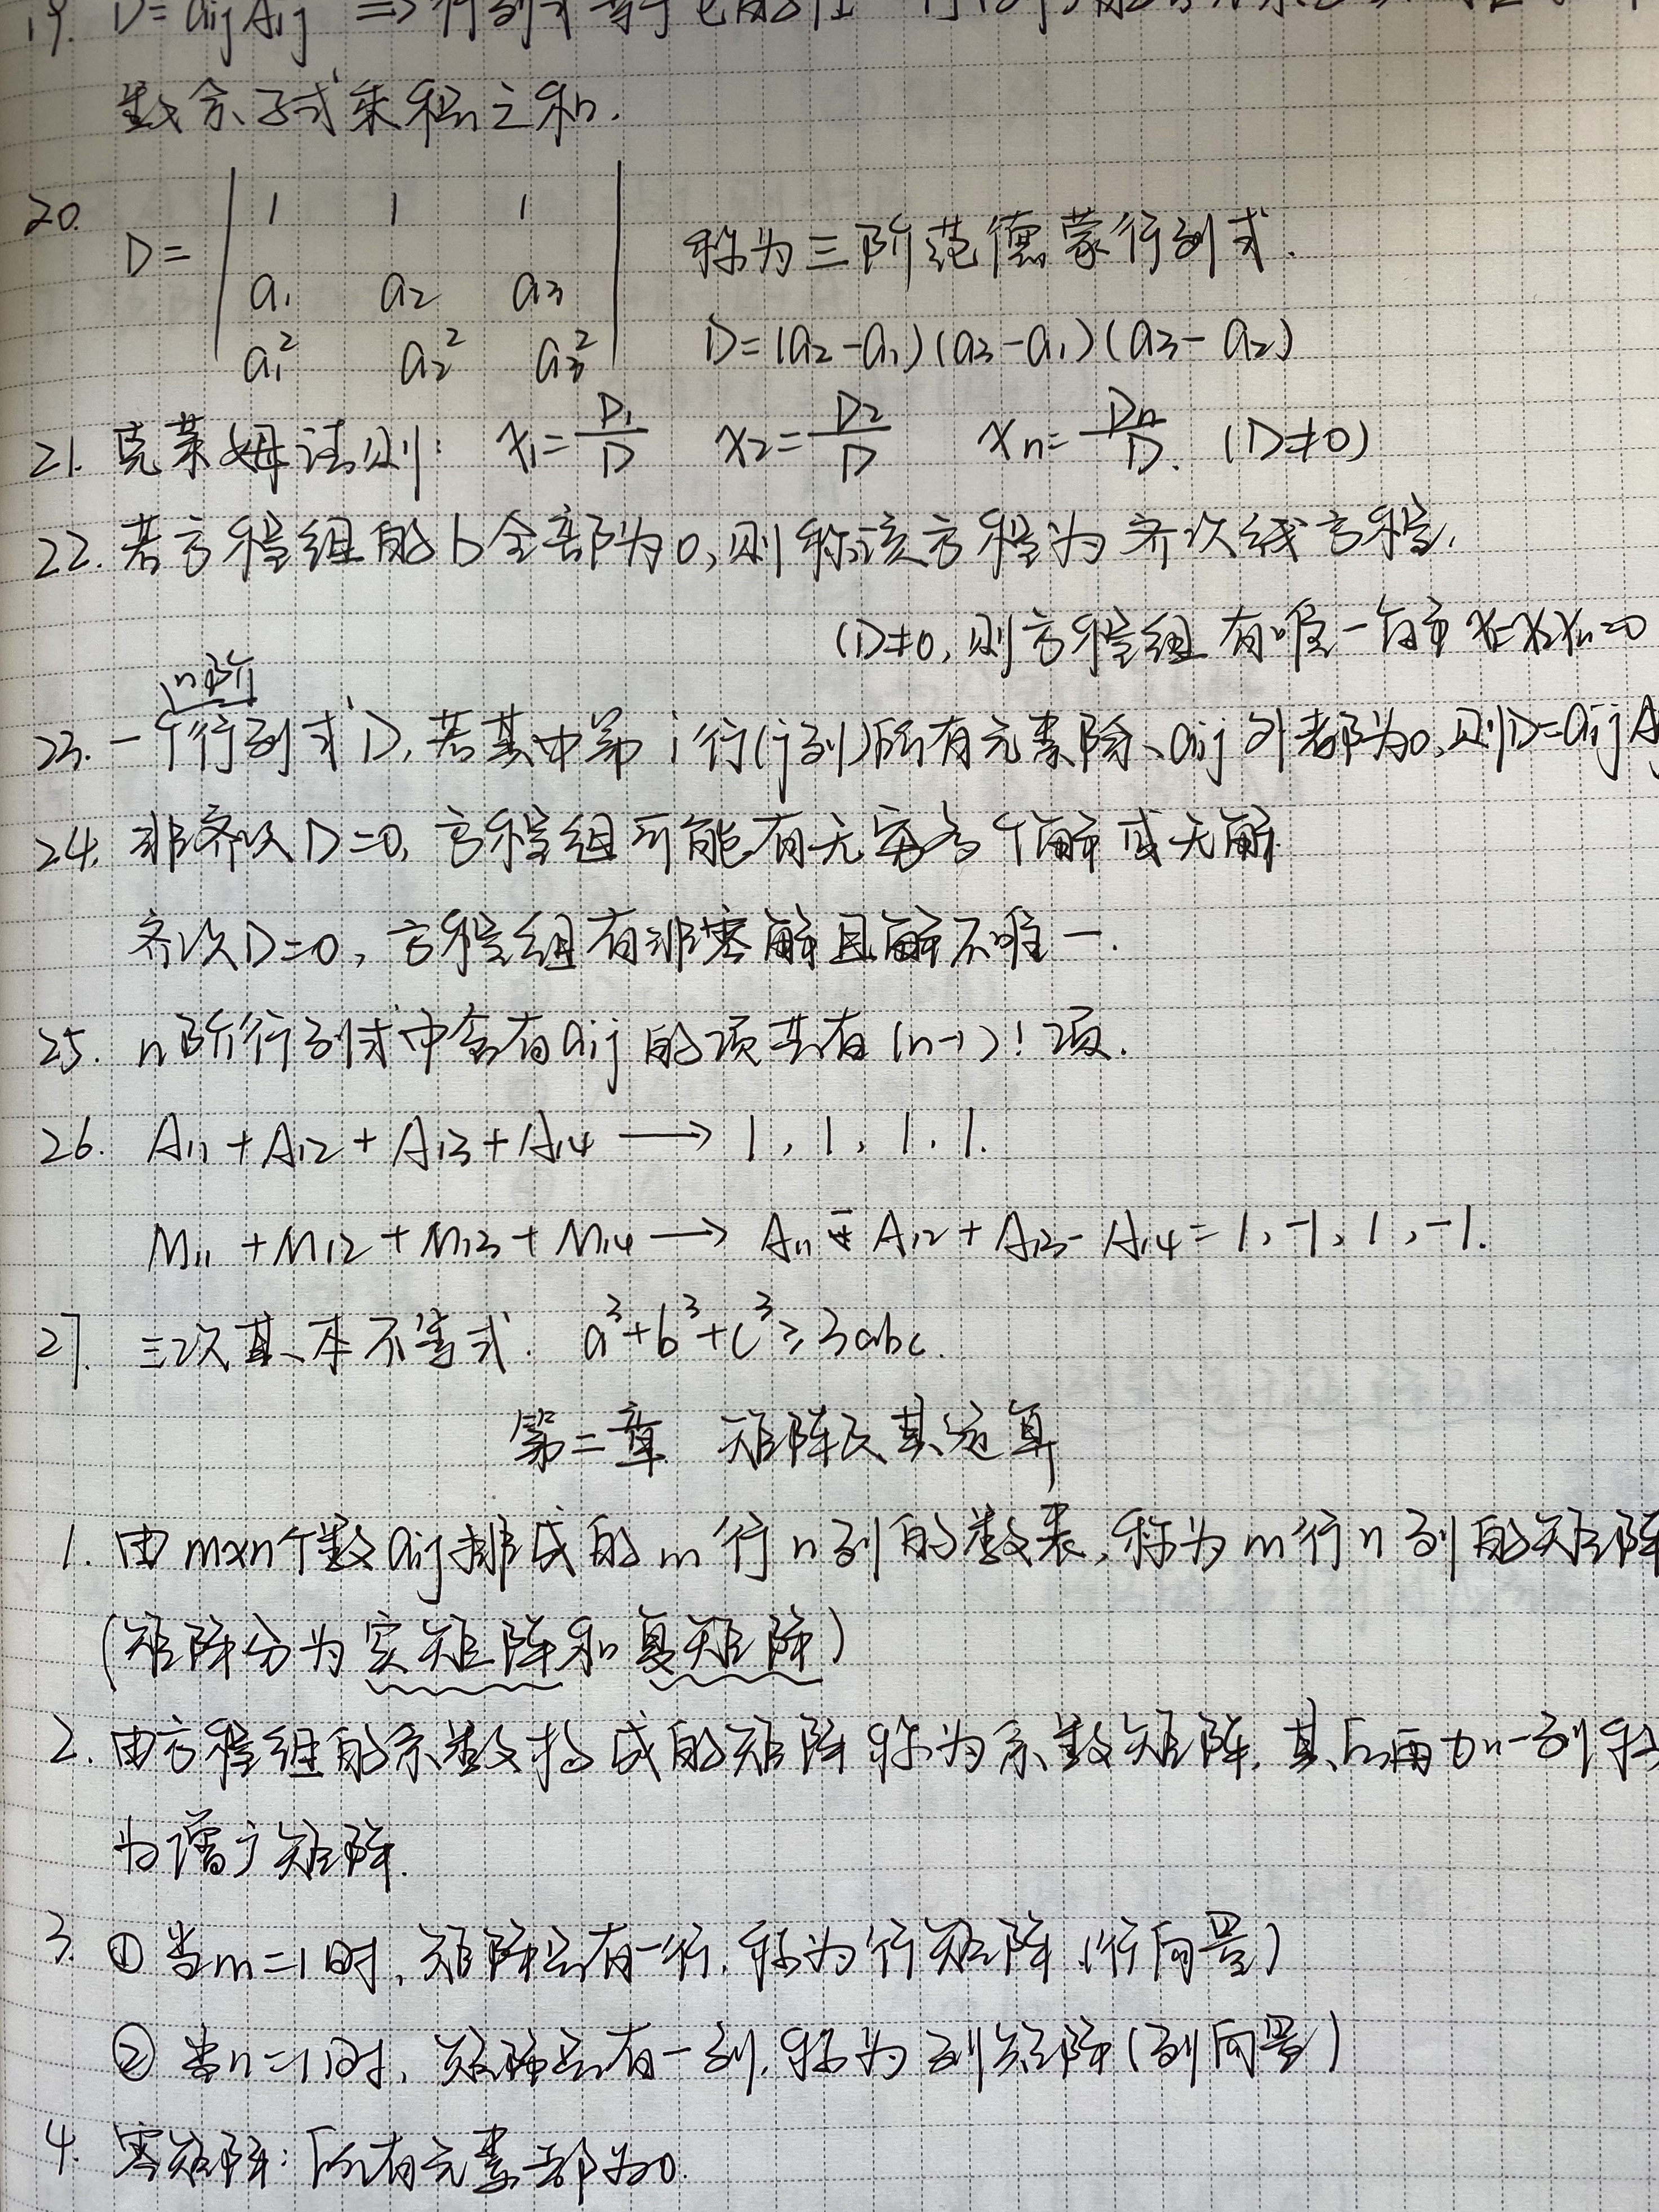 19. D=aijAij ⇒ 行列式等于它的
数余子式乘积之和.
20. D= | 1 1 1 | 称为三阶范德蒙行列式.
a₁ a₂ a₃
a₁² a₂² a₃² D=(a₂-a₁)(a₃-a₁)(a₃-a₂)
21. 克莱姆法则: x₁=D₁/D x₂=D₂/D xn=Dn/D. (D≠0)
22. 若方程组的b全部为0,则称该方程为齐次线方程.
(D≠0,则方程组有唯一解
n阶
23. 一个行列式D,若其中第i行(j列)所有元素除aij外都为0,则D=aijA
24. 非齐次D=0,方程组可能有无穷多个解或无解.
齐次D=0,方程组有非零解且解不唯一.
25. n阶行列式中含有aij的项共有(n-1)!项.
26. A₁₁+A₁₂+A₁₃+A₁₄ → 1,1,1,1.
M₁₁+M₁₂+M₁₃+M₁₄ → A₁₁-A₁₂+A₁₃-A₁₄=1,-1,1,-1.
27. 三次基本不等式. a³+b³+c³≥3abc.
第二章 矩阵及其运算
1. 由m×n个数aij排成的m行n列的数表,称为m行n列的矩阵
(矩阵分为实矩阵和复矩阵)
2. 由方程组的系数构成的矩阵称为系数矩阵,其后再加一列称
为增广矩阵.
3. ①当m=1时,矩阵只有一行,称为行矩阵(行向量)
②当n=1时,矩阵只有一列,称为列矩阵(列向量)
4. 零矩阵:所有元素都为0.